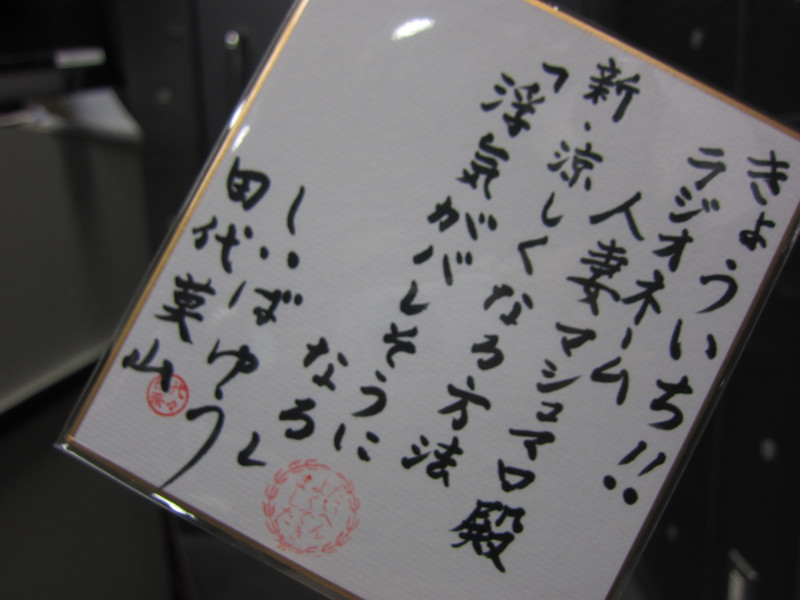 きょういち!!
ラジオネーム
人妻マシュマロ殿
新・涼しくなる方法
「浮気がバレそうに
なる」
しいばゆう
田代莫山
たいへん
よく